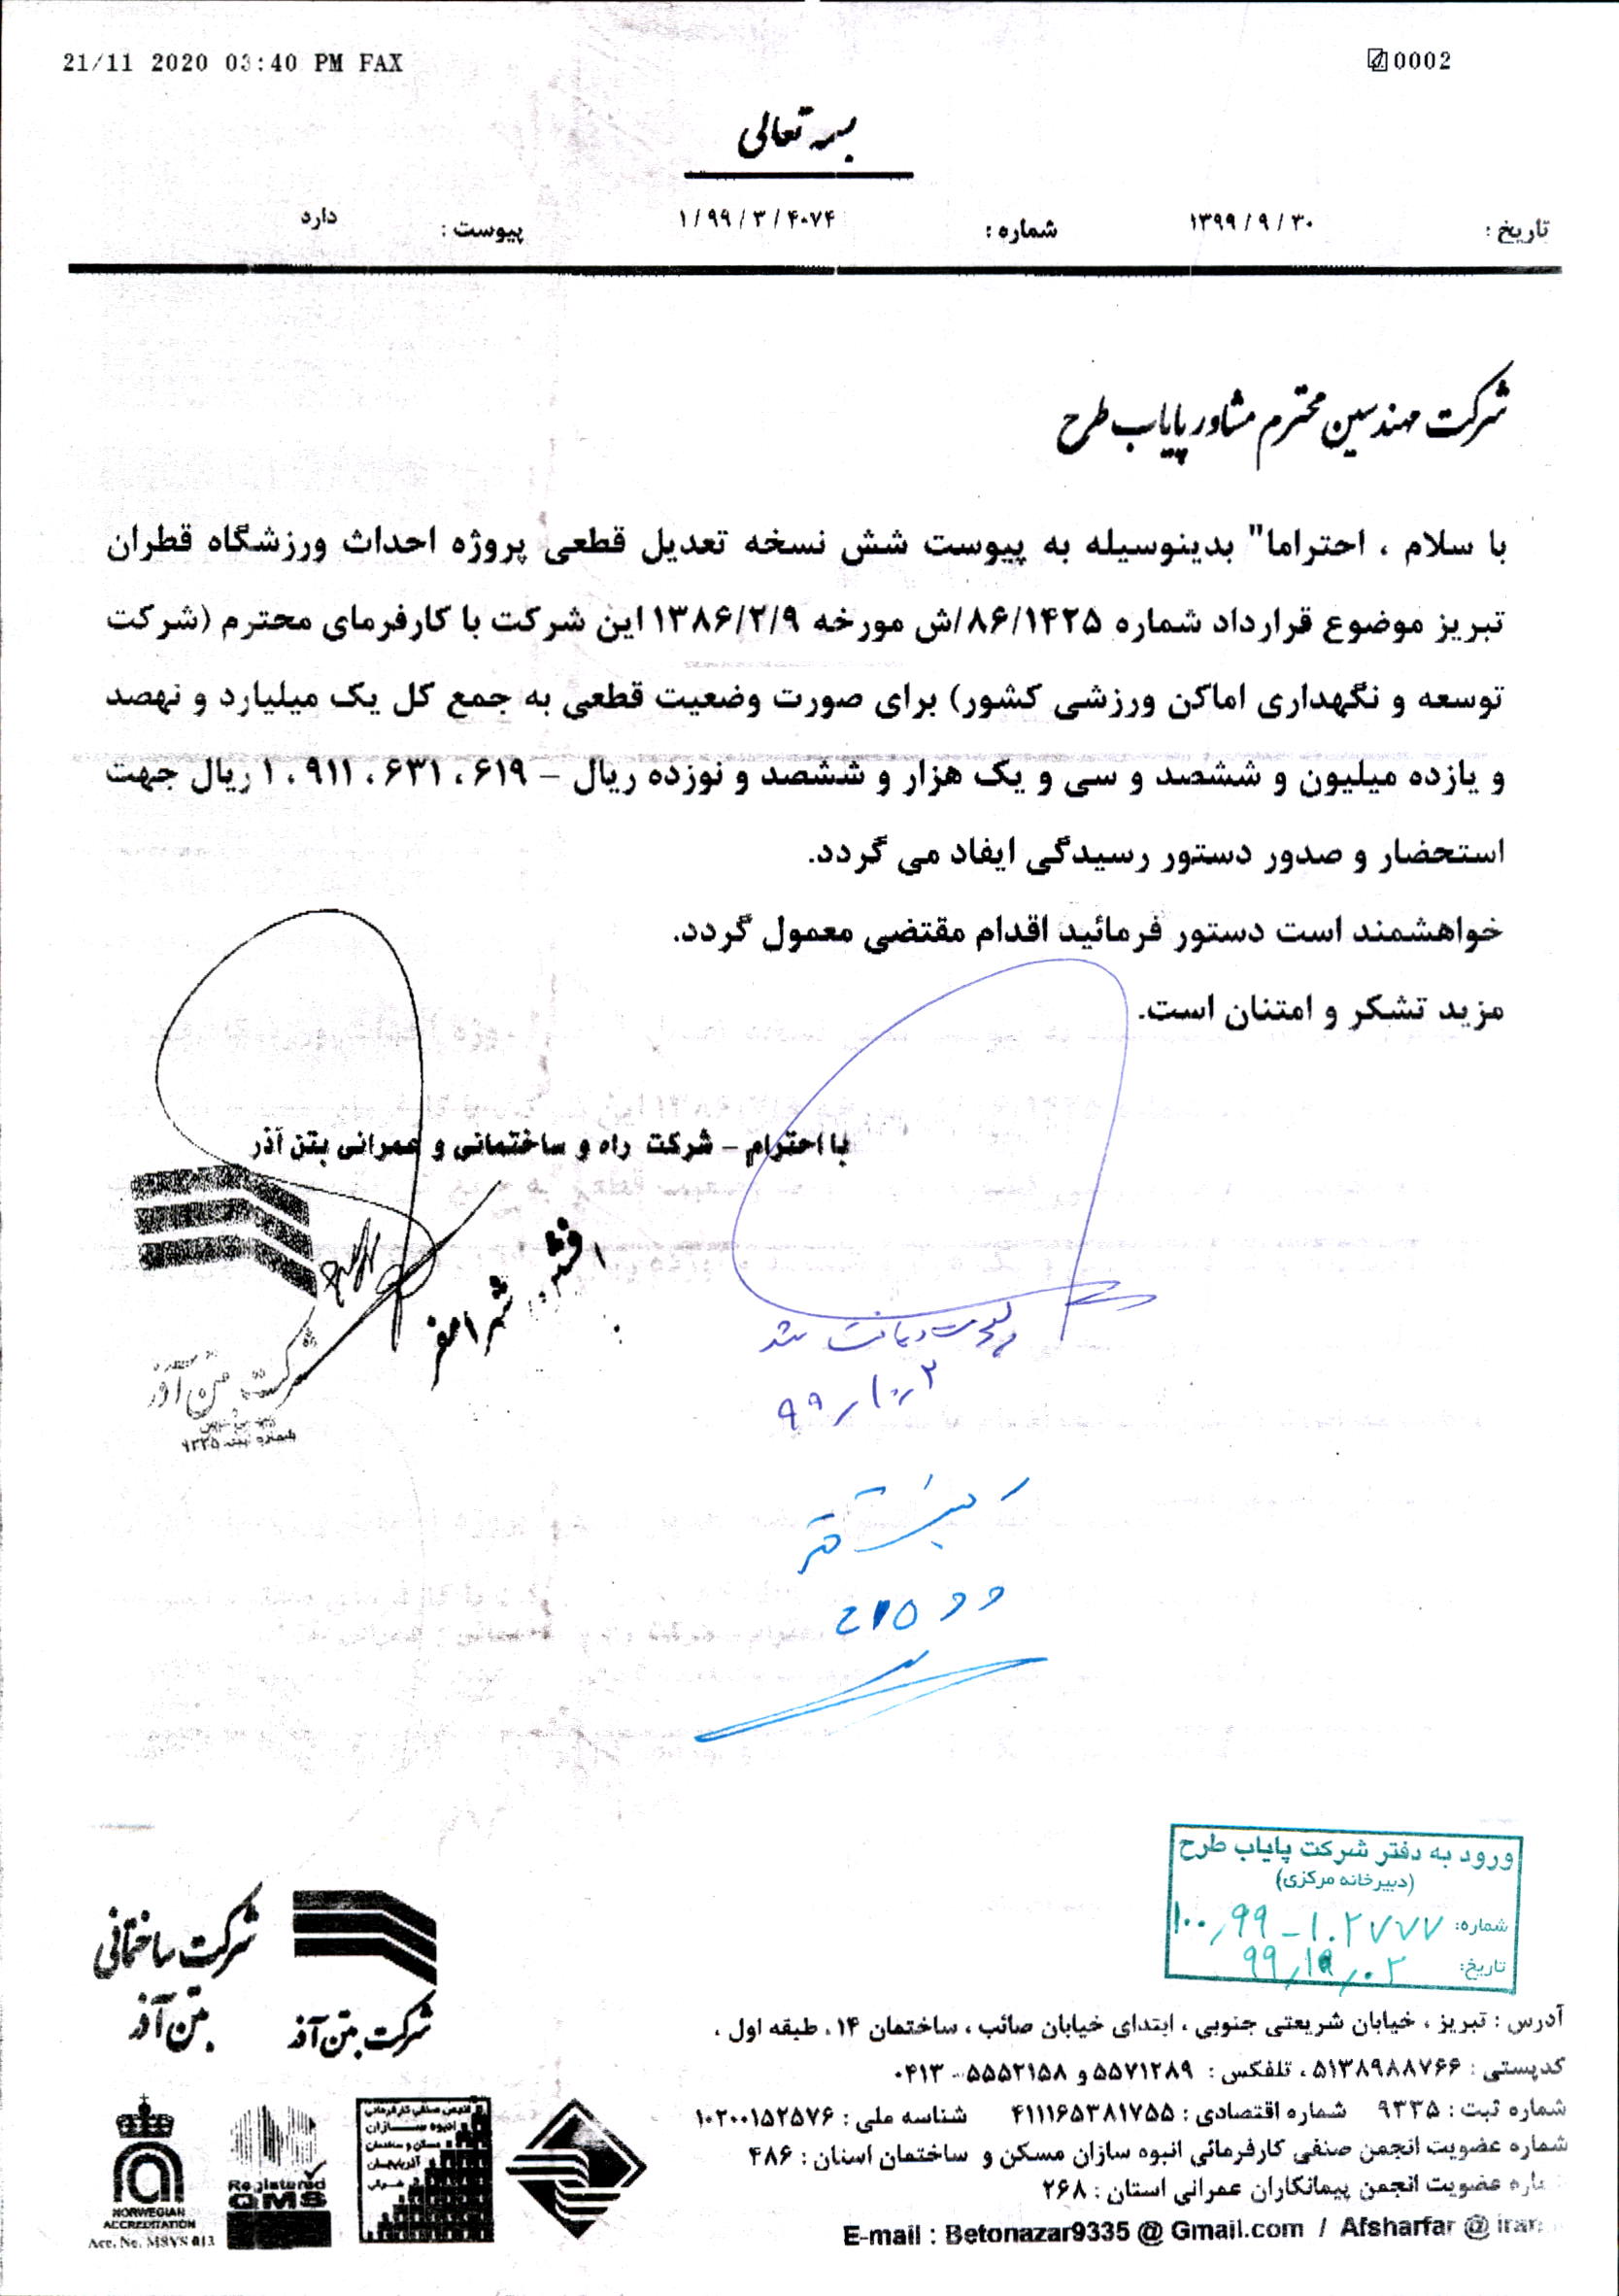 21/11 2020 03:40 PM FAX
0002
بسمه تعالی
تاریخ : ۱۳۹۹/۹/۳۰ شماره : ۱/۹۹/۳/۴۰۷۴ پیوست : دارد
شرکت مهندسین محترم مشاور پایاب طرح
با سلام ، احتراما" بدینوسیله به پیوست شش نسخه تعدیل قطعی پروژه احداث ورزشگاه قطران
تبریز موضوع قرارداد شماره ۸۶/۱۴۲۵/ش مورخه ۱۳۸۶/۲/۹ این شرکت با کارفرمای محترم (شرکت
توسعه و نگهداری اماکن ورزشی کشور) برای صورت وضعیت قطعی به جمع کل یک میلیارد و نهصد
و یازده میلیون و ششصد و سی و یک هزار و ششصد و نوزده ریال – ۱،۹۱۱،۶۳۱،۶۱۹ ریال جهت
استحضار و صدور دستور رسیدگی ایفاد می گردد.
خواهشمند است دستور فرمائید اقدام مقتضی معمول گردد.
مزید تشکر و امتنان است.
با احترام – شرکت راه و ساختمانی و عمرانی بتن آذر
شرکت بتن آذر
شماره ثبت ۹۳۳۵
پیوست دریافت شد
۹۹/۱۰/۳
ورود به دفتر شرکت پایاب طرح
(دبیرخانه مرکزی)
شماره: ۱۰۰/۹۹-۱۰۲۷۷۷
تاریخ: ۹۹/۱۰/۰۳
شرکت ساختمانی
بتن آذر
شرکت بتن آذر
آدرس : تبریز ، خیابان شریعتی جنوبی ، ابتدای خیابان صائب ، ساختمان ۱۴ ، طبقه اول ،
کدپستی : ۵۱۳۸۹۸۸۷۶۶ ، تلفکس : ۵۵۷۱۲۸۹ و ۵۵۵۲۱۵۸ – ۰۴۱۳
شماره ثبت : ۹۳۳۵ شماره اقتصادی : ۴۱۱۱۶۵۳۸۱۷۵۵ شناسه ملی : ۱۰۲۰۰۱۵۲۵۷۶
شماره عضویت انجمن صنفی کارفرمائی انبوه سازان مسکن و ساختمان استان : ۴۸۶
شماره عضویت انجمن پیمانکاران عمرانی استان : ۲۶۸
E-mail : Betonazar9335 @ Gmail.com / Afsharfar @ iran
انجمن صنفی کارفرمائی
انبوه ســـازان
مسکن و ساختمان
آذربایجان
شرقی
Registered
QMS
NORWEGIAN
ACCREDITATION
Acc. No. MSYS 013